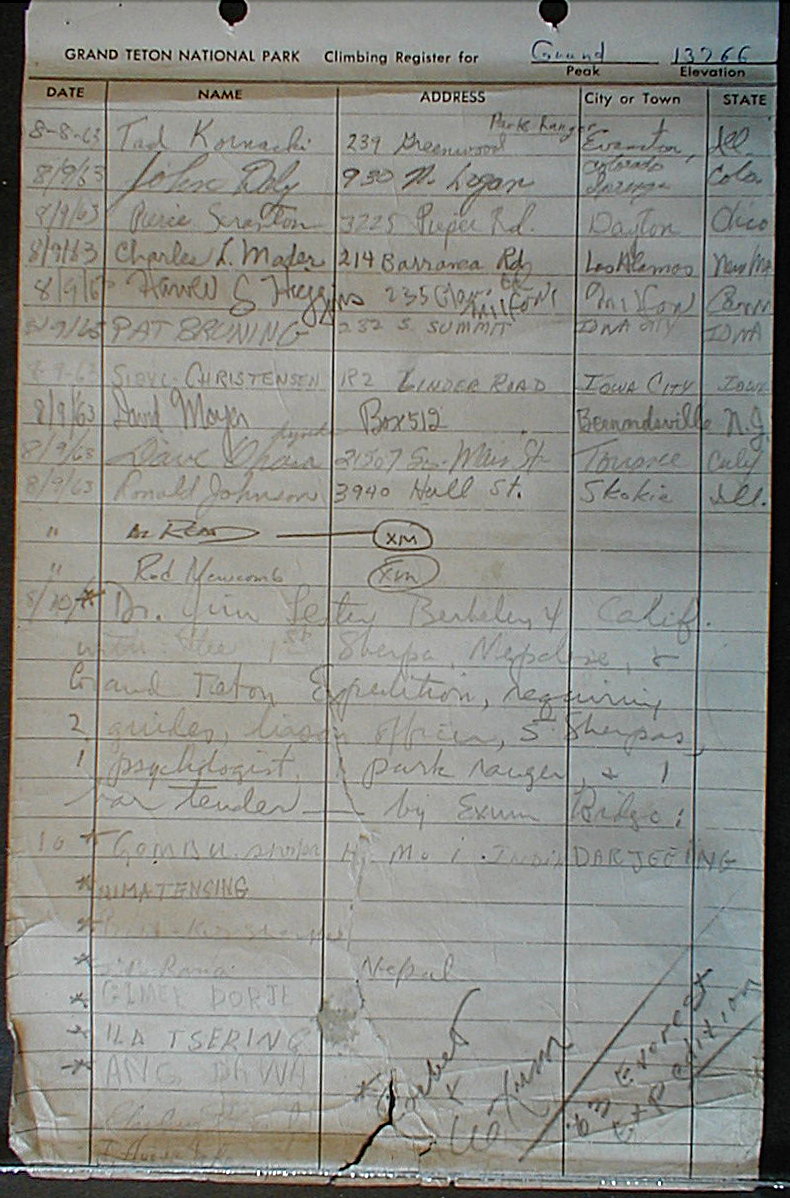 GRAND TETON NATIONAL PARK Climbing Register for Grand 13766
Peak Elevation
DATE NAME ADDRESS City or Town STATE
Park Ranger
8-8-63 Tad Kornacki 239 Greenwood Evanston, Ill
8/9/63 John Doly 930 N. Logan Colorado Springs Colo.
8/9/63 Pierce Scranton 3225 Pieper Rd. Dayton Ohio
8/9/63 Charles L. Mader 214 Barranca Rd Los Alamos New Mex
8/9/63 Higgins 235 Milford Conn
8/9/63 PAT BRUNING 232 S. SUMMIT IOWA CITY IOWA
8-9-63 CHRISTENSEN R2 LINDER ROAD IOWA CITY IOWA
8/9/63 David Moyer Box 512 Bernardsville N.J.
8/9/63 Dave 21507 So. Main St Torrance Calif
8/9/63 Ronald Johnson 3940 Hull St. Skokie Ill.
" AL READ XM
" Rod Newcomb XM
8/10/ * Dr. Jim Lester Berkeley 4 Calif.
with the 1st Sherpa, Nepalese, &
Grand Teton Expedition, requiring
2 guides, liason officer, 5 Sherpas,
1 psychologist, 1 park ranger, & 1
bar tender — by Exum Ridge!
10 * GOMBU H. M. I. INDIA DARJEELING
* NIMA TENSING
*
* Rana Nepal
* GIMEE DORJE
* ILA TSERING
* ANG DAWA
* Barry Corbet
& Exum
63 Everest
Expedition